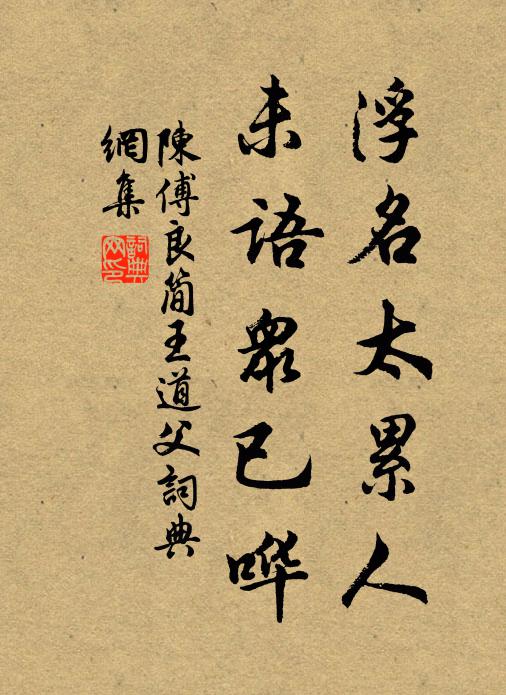 浮名太累人
未語衆已哗
陳傅良簡王道父詞典
網集
詞典
网印